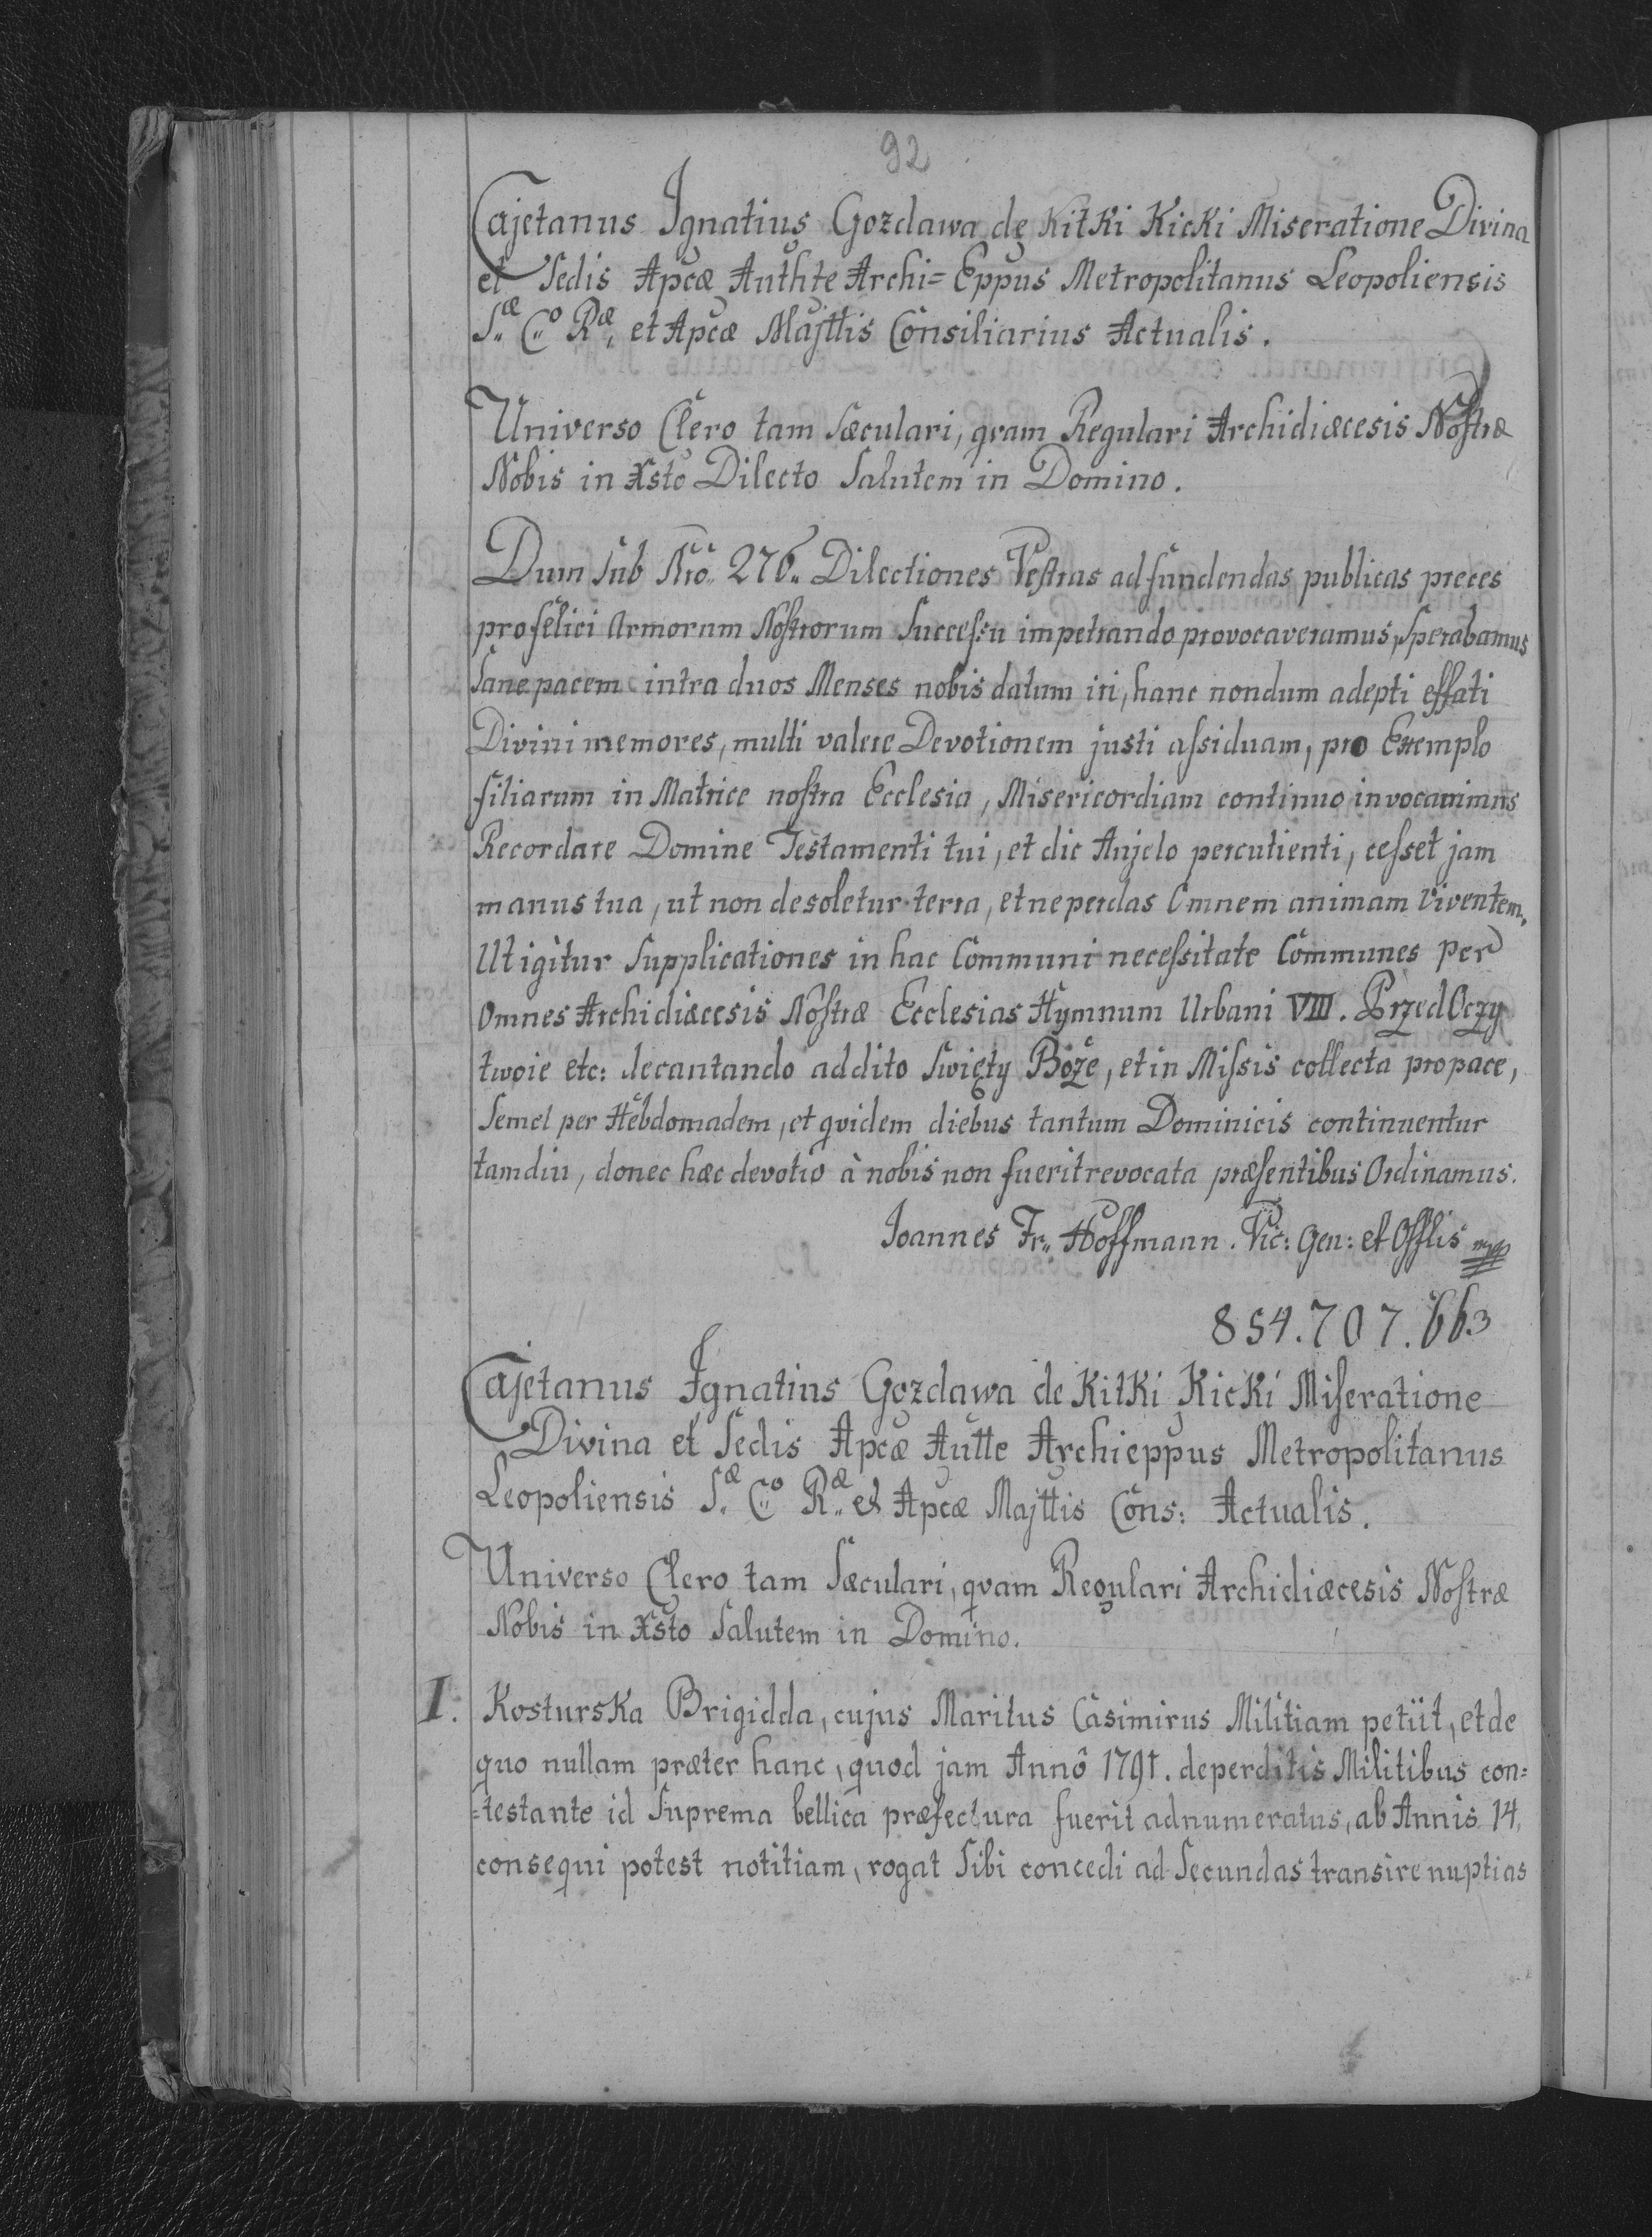 92
Cajetanus Ignatius Gozdawa de Kitki Kicki Miseratione Divina
et Sedis Apcæ Authte Archi= Eppus Metropolitanus Leopoliensis
S.æ C.o R.æ, et Apcæ Majttis Consiliarius Actualis.
Universo Clero tam Sæculari, qvam Regulari Archidiæcesis Nostræ
Nobis in Xsto Dilecto Salutem in Domino.
Dum sub Nro. 276. Dilectiones Vestras ad fundendas publicas preces
pro felici Armorum Nostrorum Successu impetrando provocaveramus, sperabamus
Sane pacem intra duos Menses nobis datum iri, hanc nondum adepti effati
Divini memores, multi valere Devotionem justi assiduam, pro Exemplo
filiarum in Matrice nostra Ecclesia, Misericordiam continuo invocavimus
Recordare Domine Testamenti tui, et dic Anjelo percutienti, cesset jam
manus tua, ut non desoletur terra, et ne perdas Omnem animam Viventem.
Ut igitur Supplicationes in hac Communi necessitate Communes per
Omnes Archidiæcesis Nostræ Ecclesias Hymnum Urbani VIII. Przed Oczy
twoie etc: decantando addito Swięty Boże, et in Missis collecta pro pace,
Semel per Hebdomadem, et qvidem diebus tantum Dominicis continuentur
tamdiu, donec hæc devotio à nobis non fuerit revocata præsentibus Ordinamus.
Joannes Fr. Hoffmann. Vic: Gen: et Offlis mpp
854.707.663
Cajetanus Ignatius Gozdawa de Kitki Kicki Miseratione
Divina et Sedis Apcæ Autte Archieppus Metropolitanus
Leopoliensis S.æ C.o R.æ et Apcæ Majttis Cons: Actualis.
Universo Clero tam Sæculari, qvam Regulari Archidiæcesis Nostræ
Nobis in Xsto Salutem in Domino.
I. Kosturska Brigidda, cujus Maritus Casimirus Militiam petiit, et de
quo nullam præter hanc, quod jam Annô 1791. deperditis Militibus con=
=testante id Suprema bellica præfectura fuerit adnumeratus, ab Annis 14,
consequi potest notitiam, rogat Sibi concedi ad Secundas transire nuptias